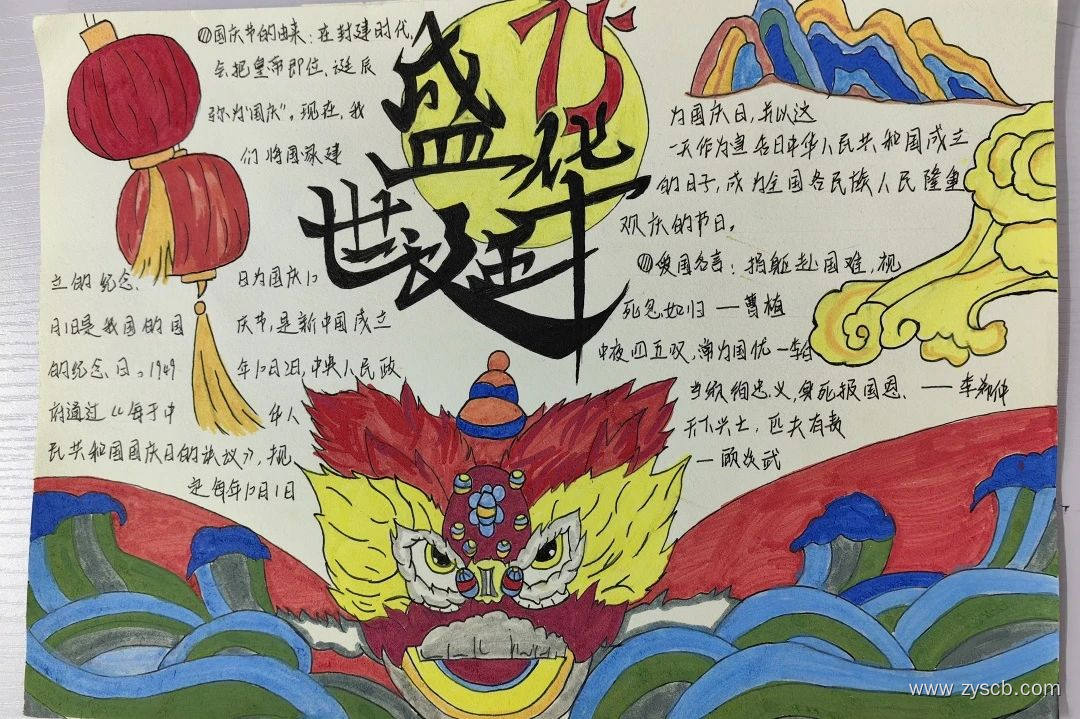 盛世华诞
75
①国庆节的由来：在封建时代，
会把皇帝即位、诞辰
称为"国庆"。现在，我
们将国家建
立的纪念、日为国庆12
月1日是我国的国庆节，是新中国成立
的纪念日。1949年12月2日，中央人民政
府通过《每于中华人
民共和国国庆日的决议》，规
定每年12月1日
为国庆日，并以这
一天作为宣告日中华人民共和国成立
的日子，成为全国各民族人民隆重
观庆的节日。
①爱国名言：捐躯赴国难，视
死忽如归——曹植
中夜四五叹，常为国忧
当须徇忠义，身死报国恩.——李希仲
天下兴亡，匹夫有责
—顾炎武
www.zyscb.com